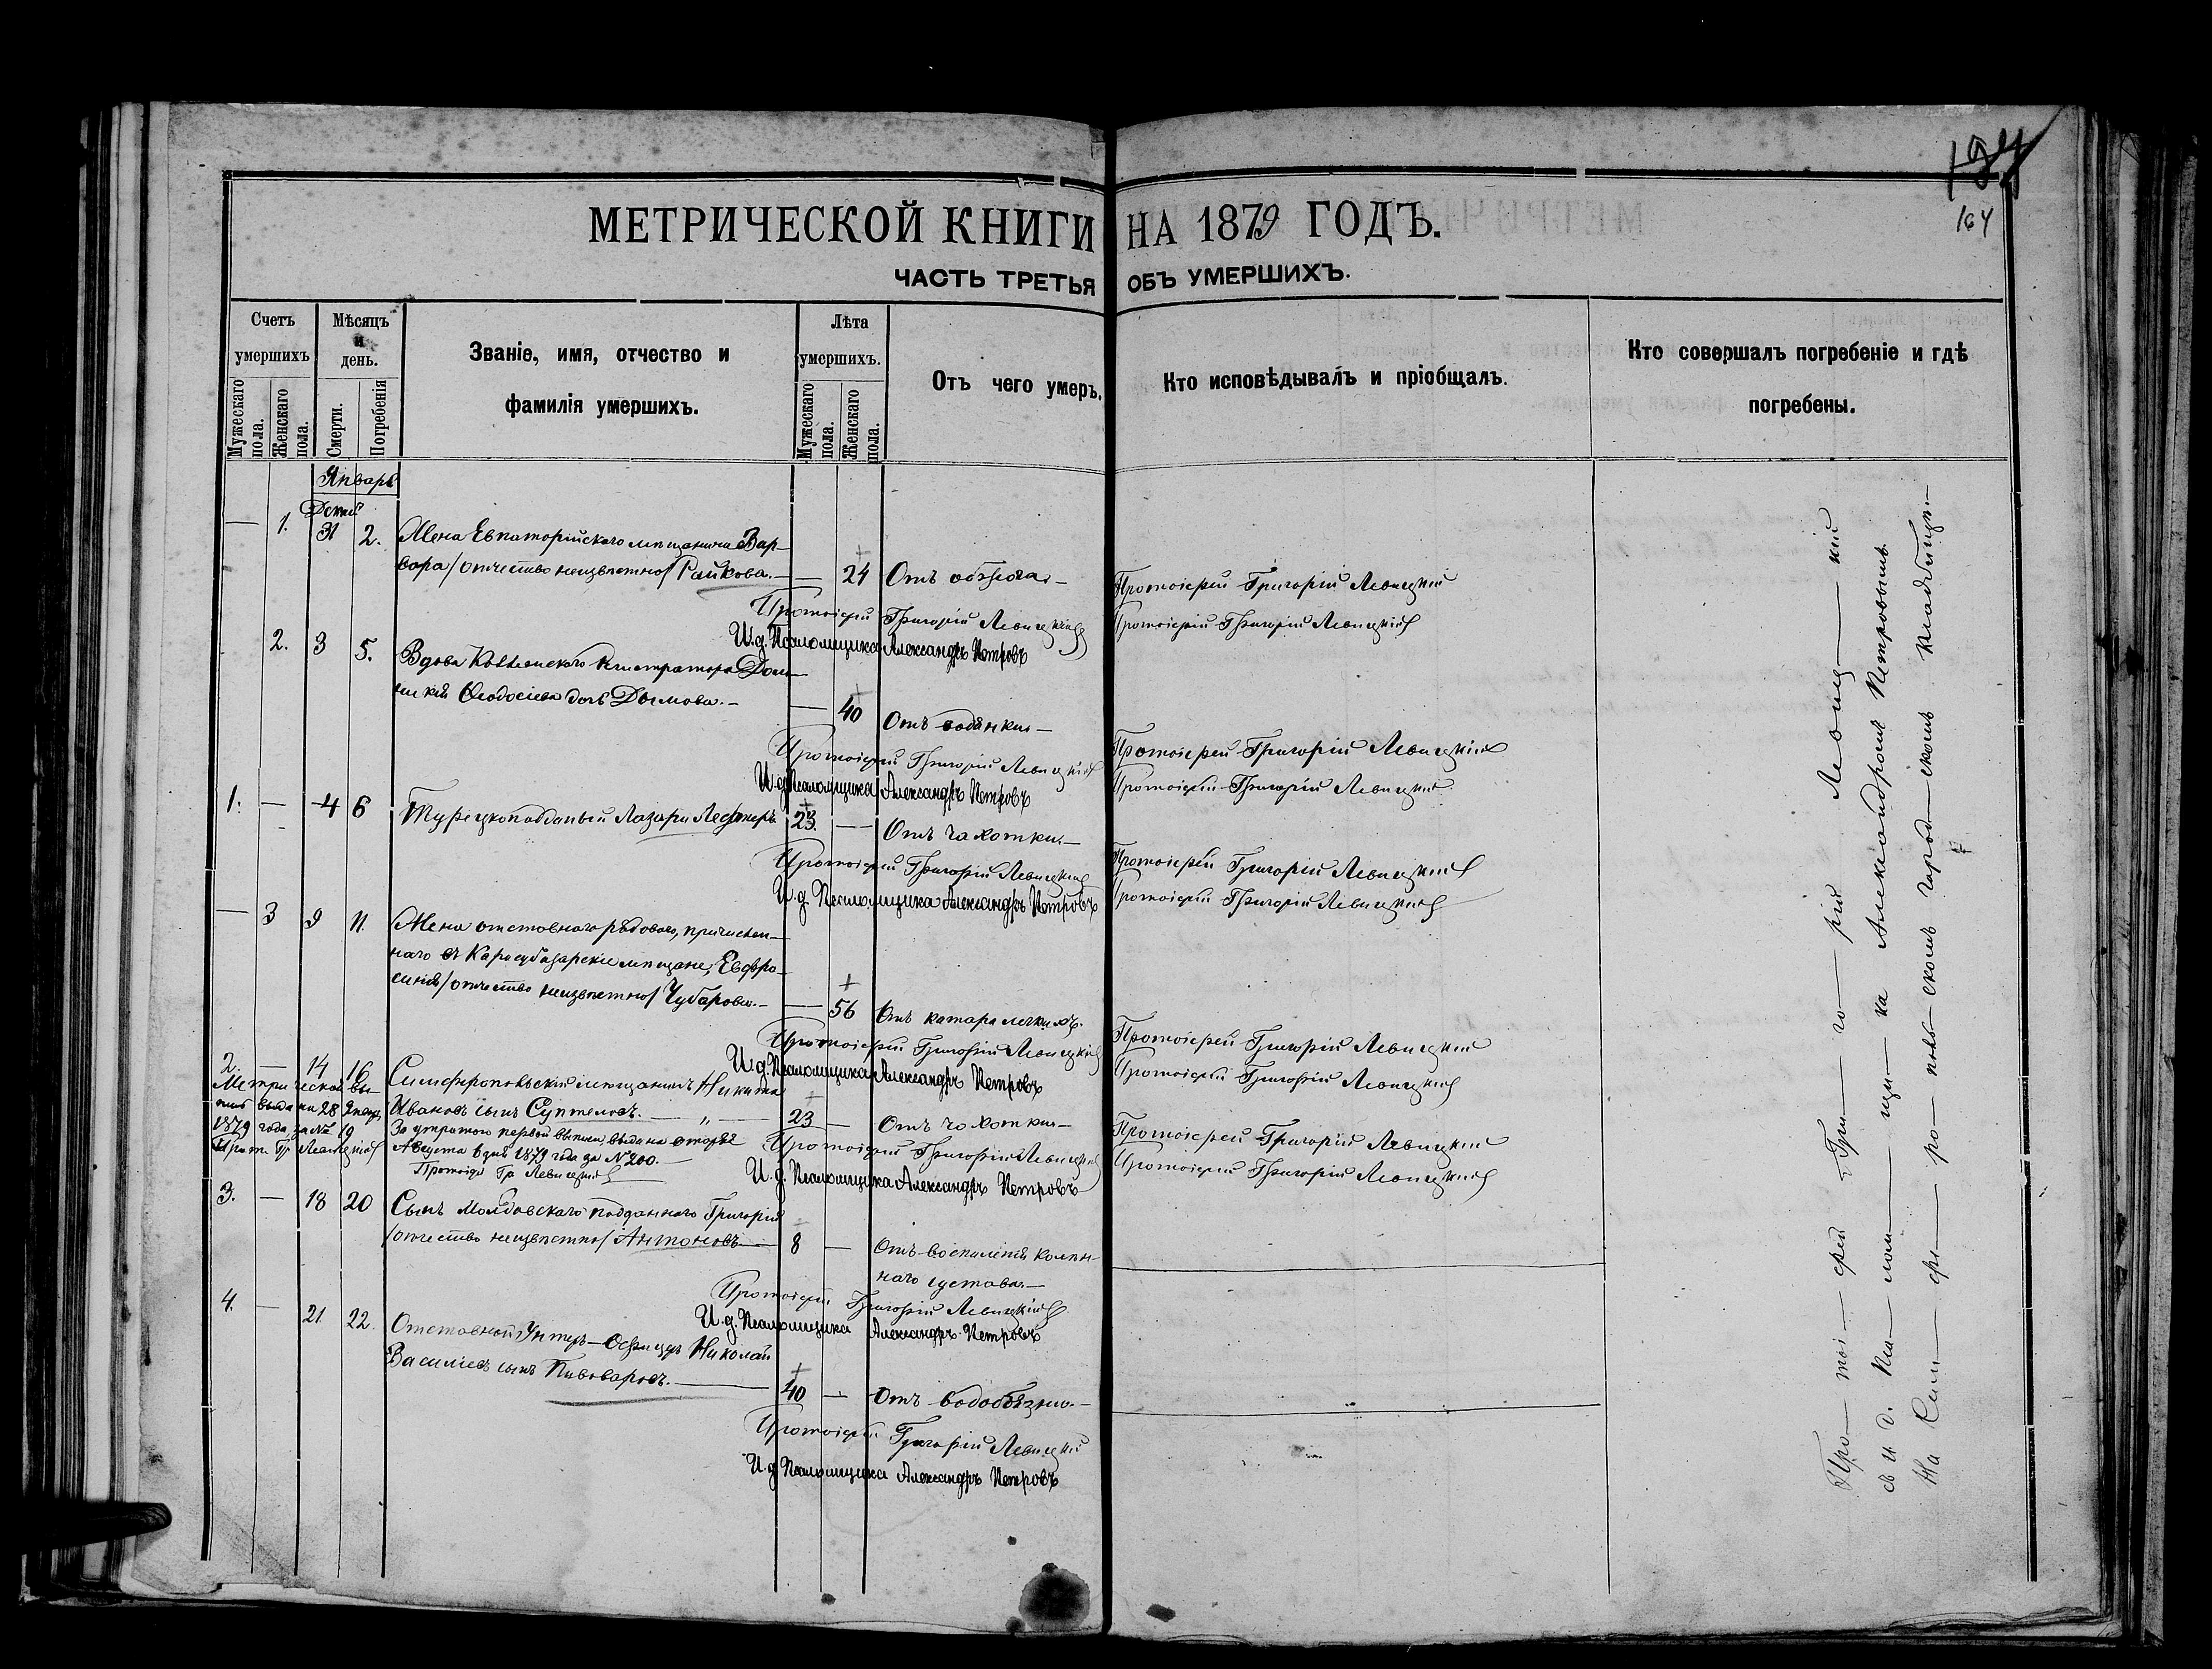 194
164
МЕТРИЧЕСКОЙ КНИГИ НА 1879 ГОДЪ.
ЧАСТЬ ТРЕТЬЯ ОБЪ УМЕРШИХЪ.
Счетъ умершихъ
Мужескаго пола.
Женскаго пола.
Мѣсяцъ и день.
Смерти.
Погребенія
Званіе, имя, отчество и
фамилія умершихъ.
Лѣта умершихъ.
Мужескаго пола.
Женскаго пола.
Отъ чего умеръ.
Кто исповѣдывалъ и пріобщалъ.
Кто совершалъ погребеніе и гдѣ
погребены.
Январь
— 1. 31 2. Жена Евпаторійскаго мѣщанина Вар-
вара /отчество неизвѣстно/ Райкова. — 24
Протоіерей Григорій Левицкій
Протоіерей Григорій Левицкій
Протоіерей Григорій Левицкій
И. д. Псаломщика Александръ Петровъ
2. 3 5. Вдова Регистратора
Ѳеодосіева дочь — 40 Отъ водянки —
Протоіерей Григорій Левицкій
Протоіерей Григорій Левицкій
Протоіерей Григорій Левицкій
И. д. Псаломщика Александръ Петровъ
1. — 4 6 Турецкоподданый Лазари 23. — Отъ чахотки. —
Протоіерей Григорій Левицкій
Протоіерей Григорій Левицкій
Протоіерей Григорій Левицкій
И. д. Псаломщика Александръ Петровъ
— 3 9 11. Жена отставнаго рядоваго, причислен-
наго въ Карасубазарскіе мѣщане, Евфро-
синія /отчество неизвѣстно/ Чубарова. — 56 Отъ катара легкихъ.
Протоіерей Григорій Левицкій
Протоіерей Григорій Левицкій
Протоіерей Григорій Левицкій
И. д. Псаломщика Александръ Петровъ
2. — 14 16 Симферопольскій мѣщанинъ Никита
Ивановъ сынъ 23 — Отъ чахотки —
Метрической вы-
пись выдана 28 Января
1879 года за № 19
Прот. Гр. Левицкій
За утратою первой выписи, выдана вторая
Августа 6 дня 1879 года за № 200. —
Протоіерей Гр. Левицкій
Протоіерей Григорій Левицкій
Протоіерей Григорій Левицкій
Протоіерей Григорій Левицкій
И. д. Псаломщика Александръ Петровъ
3. — 18 20 Сынъ Молдавскаго подданнаго Григорій
/отчество неизвѣстно/ Антоновъ. — 8 — Отъ воспаленія колѣн-
наго сустава. —
Протоіерей Григорій Левицкій
И. д. Псаломщика Александръ Петровъ
4. — 21. 22. Отставной Унтеръ-Офицеръ Николай
Василіевъ сынъ Пивоваровъ. — 40 — Отъ водобоязни. —
Протоіерей Григорій Левицкій
И. д. Псаломщика Александръ Петровъ
Про — тоі — ерей Гри — го — рій Левиц — кій
съ и. д. Пса — лом — щи — ка Александромъ Петровымъ
На Сим — фе — ро — поль — скомъ город — скомъ кладбищѣ. —